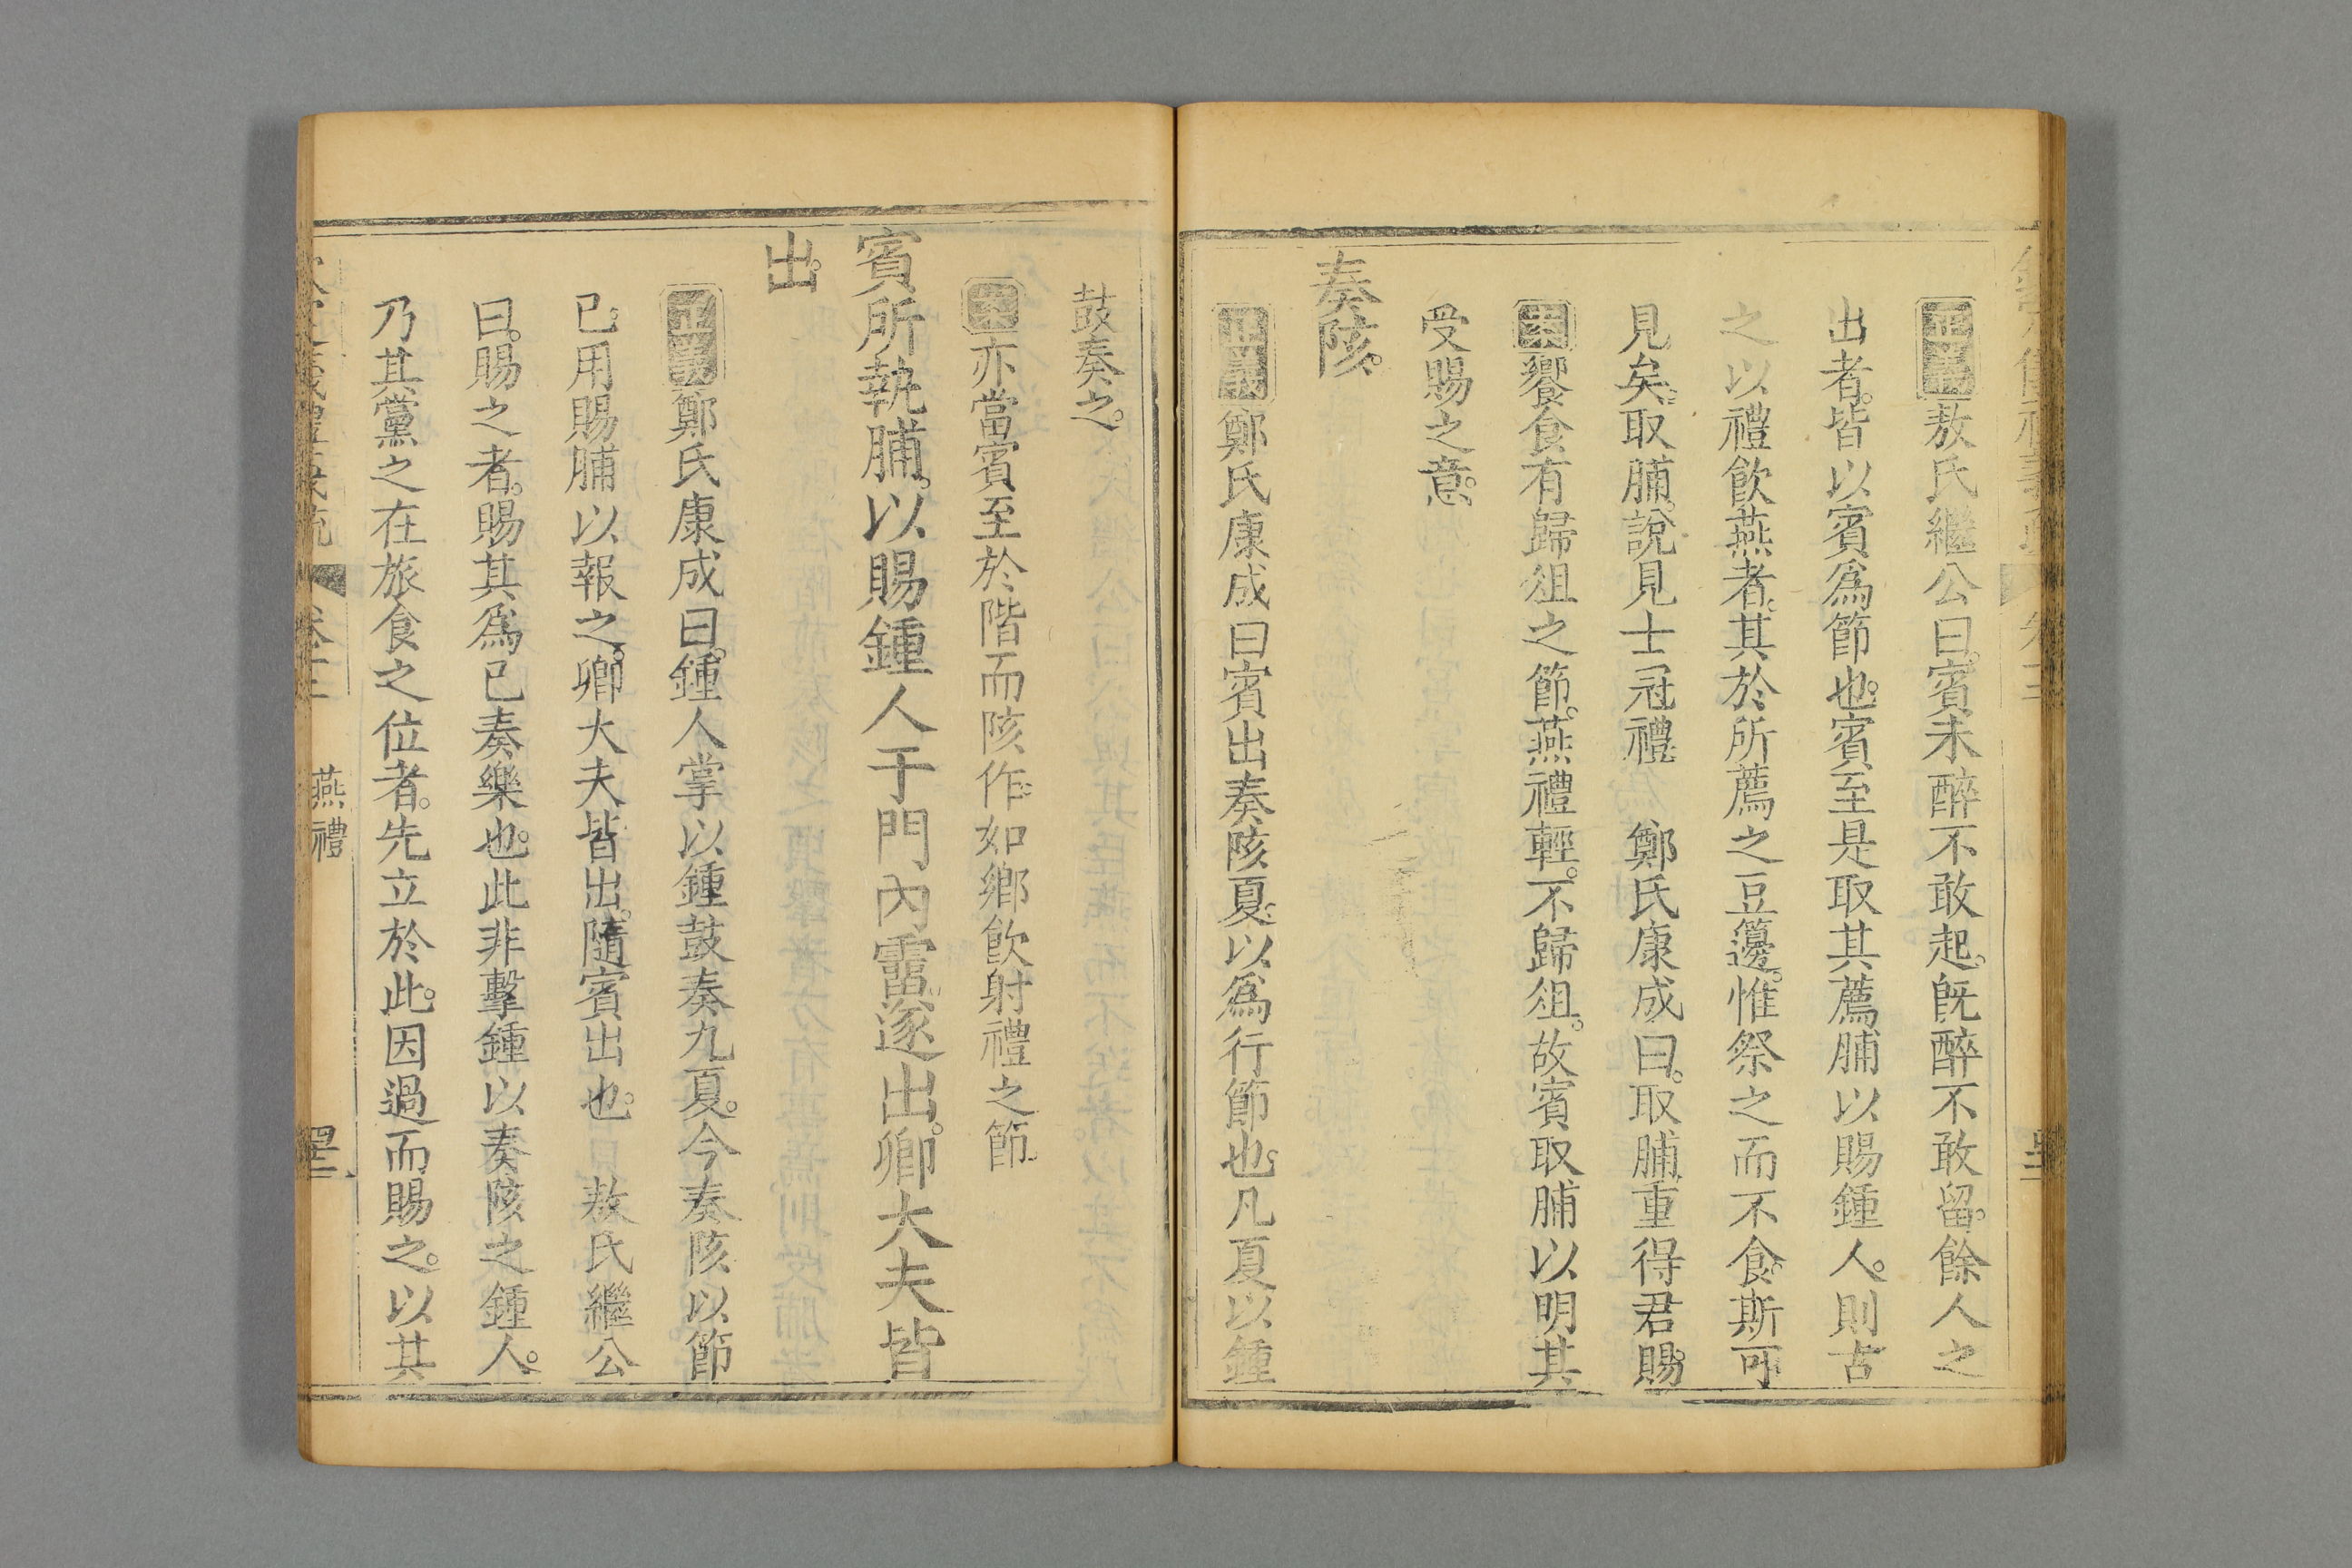 正義敖氏繼公曰賓未醉不敢起既醉不敢留餘人之
出者皆以賓爲節也賓至是取其薦脯以賜鍾人則古
之以禮飮燕者其於所薦之豆籩惟祭之而不食斯可
見矣取脯說見士冠禮 鄭氏康成曰取脯重得君賜
案饗食有歸俎之節燕禮輕不歸俎故賓取脯以明其
受賜之意
奏陔
正義鄭氏康成曰賓出奏陔夏以爲行節也凡夏以鍾
鼓奏之
案亦當賓至於階而陔作如鄕飮射禮之節
賓所執脯以賜鍾人于門內霤遂出卿大夫皆
出
正義鄭氏康成曰鍾人掌以鍾鼓奏九夏今奏陔以節
已用賜脯以報之卿大夫皆出隨賓出也 敖氏繼公
曰賜之者賜其爲已奏樂也此非擊鍾以奏陔之鍾人
乃其黨之在旅食之位者先立於此因過而賜之以其
燕禮